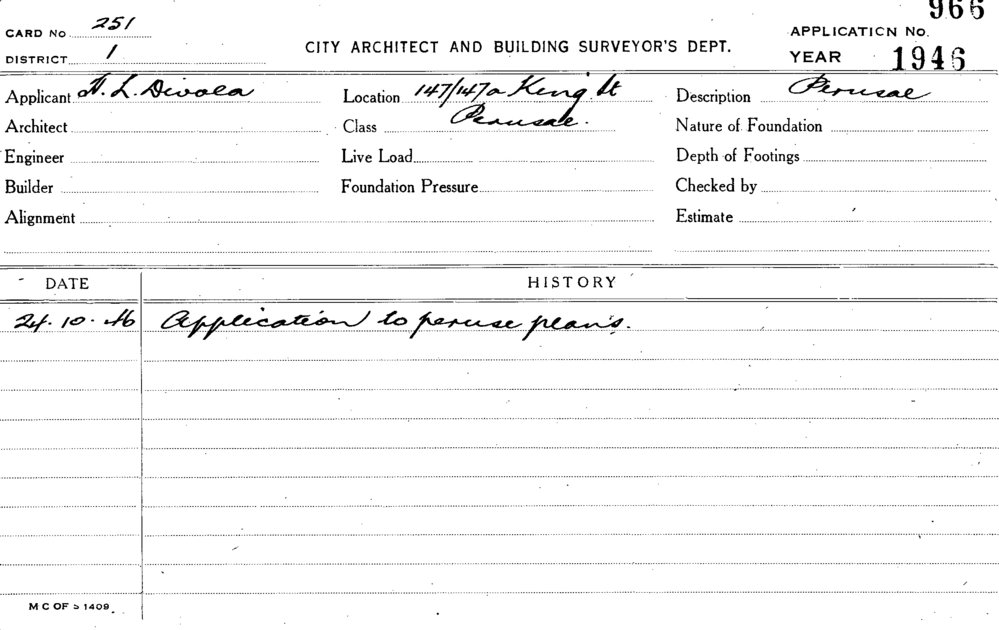 966
CARD No 251
APPLICATION No.
CITY ARCHITECT AND BUILDING SURVEYOR'S DEPT.
DISTRICT 1
YEAR 1946
Applicant L. Divola Location 147/147a King St Description Perusal
Architect Class Perusal. Nature of Foundation
Engineer Live Load Depth of Footings
Builder Foundation Pressure Checked by
Alignment Estimate
DATE HISTORY
24.10.46 Application to peruse plans.
M C OF S 1409